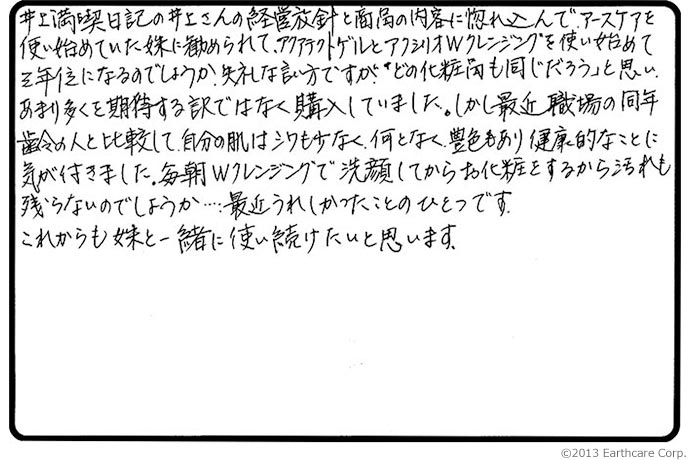 井上満喫日記の井上さんの経営放針と商品の内容に惚れ込んで、アースケアを
使い始めていた妹に勧められて、アクアテクトゲルとアクシリオWクレンジングを使い始めて
三年位になるのでしょうか、失礼な言い方ですが、“どの化粧品も同じだろう」と思い、
あまり多くを期待する訳ではなく購入していました。しかし最近職場の同年
齢の人と比較して、自分の肌はシワも少なく、何となく、豊色もあり健康的なことに
気が付きました。毎朝Wクレンジングで洗顔してからお化粧をするから汚れも
残らないのでしょうか…. 最近うれしかったことのひとつです。
これからも妹と一緒に使い続けたいと思います。
©2013 Earthcare Corp.